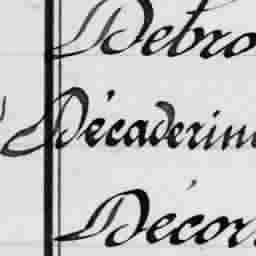 Debro
Décaderini
Décor